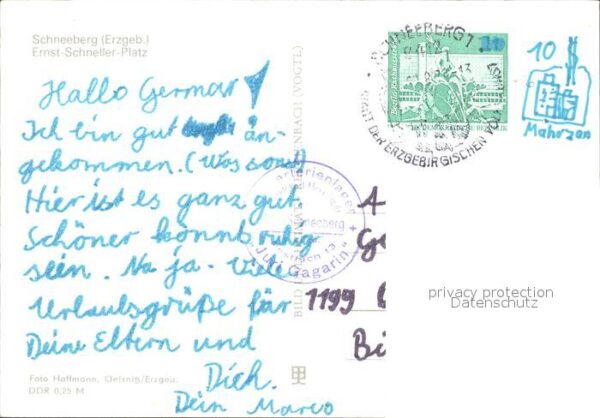 Schneeberg (Erzgeb.)
Ernst-Schneller-Platz
Hallo Germar
Ich bin gut an-
gekommen. (Was sonst)
Hier ist es ganz gut.
Schöner könnt ruhig
sein. Na ja. Viele
Urlaubsgrüße für
Deine Eltern und
Dich.
Dein Marco
Foto Hoffmann, Oelsnitz/Erzgeb.
DDR 0,25 M
BILD REICHENBACH (VOGTL)
SCHNEEBERG 1
DER ERZGEBIRGISCHEN
DEUTSCHE DEMOKRATISCHE REPUBLIK
10
10
Mahrzan
Schneeberg
"Juri Gagarin"
A
Ge
1199
Bi
privacy protection
Datenschutz